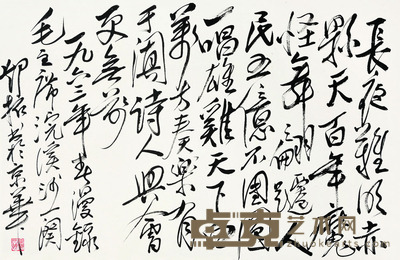 長夜難明赤
縣天百年魔
怪舞翩躚人
民五億不團圓
一唱雄雞天下白
萬方奏樂有
于闐詩人興會
更無前
一九六三年春漫錄
毛主席浣溪沙一闋
鄧拓於京華
艺术网